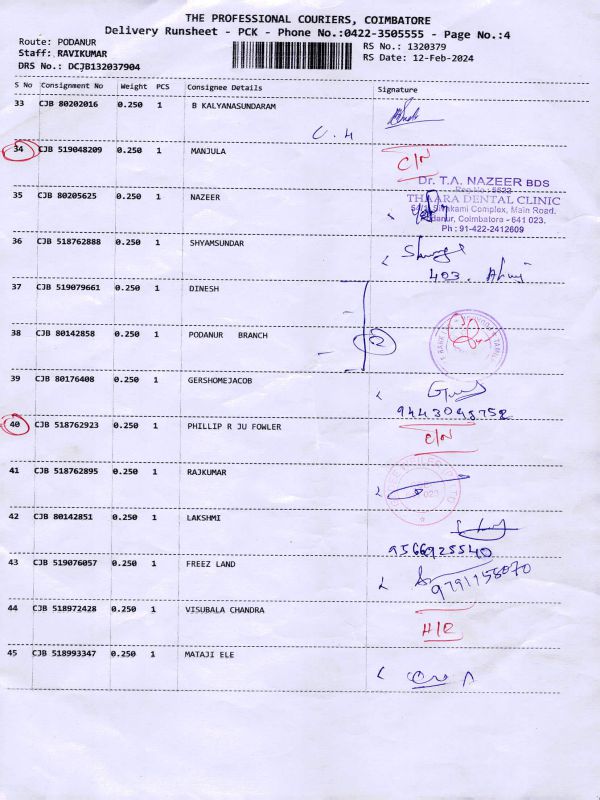 THE PROFESSIONAL COURIERS, COIMBATORE
Delivery Runsheet - PCK - Phone No.:0422-3505555 - Page No.:4
Route: PODANUR
RS No.: 1320379
Staff: RAVIKUMAR
RS Date: 12-Feb-2024
DRS No.: DCJB132037904
S No Consignment No Weight PCS Consignee Details Signature
33 CJB 80202016 0.250 1 B KALYANASUNDARAM
34 CJB 519048209 0.250 1 MANJULA C/N
Dr. T.A. NAZEER BDS
THAARA DENTAL CLINIC
35 CJB 80205625 0.250 1 NAZEER
Complex, Main Road.
Podanur, Coimbatore - 641 023.
Ph : 91-422-2412609
36 CJB 518762888 0.250 1 SHYAMSUNDAR
403.
37 CJB 519079661 0.250 1 DINESH
38 CJB 80142858 0.250 1 PODANUR BRANCH
2
39 CJB 80176408 0.250 1 GERSHOMEJACOB
40 CJB 518762923 0.250 1 PHILLIP R JU FOWLER C/N
41 CJB 518762895 0.250 1 RAJKUMAR
42 CJB 80142851 0.250 1 LAKSHMI
9566925540
43 CJB 519076057 0.250 1 FREEZ LAND
9791158070
44 CJB 518972428 0.250 1 VISUBALA CHANDRA
45 CJB 518993347 0.250 1 MATAJI ELE